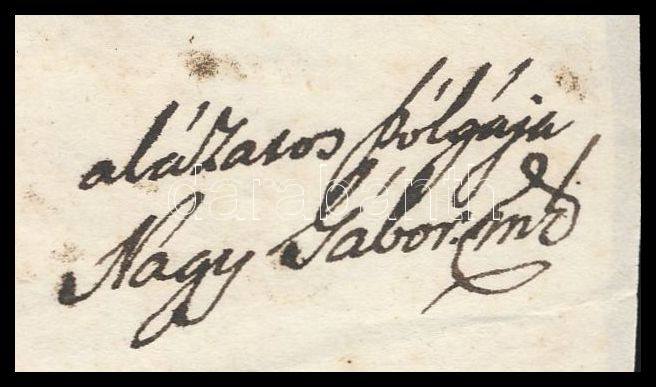 alázatos szólgája
Nagy Gábor mk
darabanth